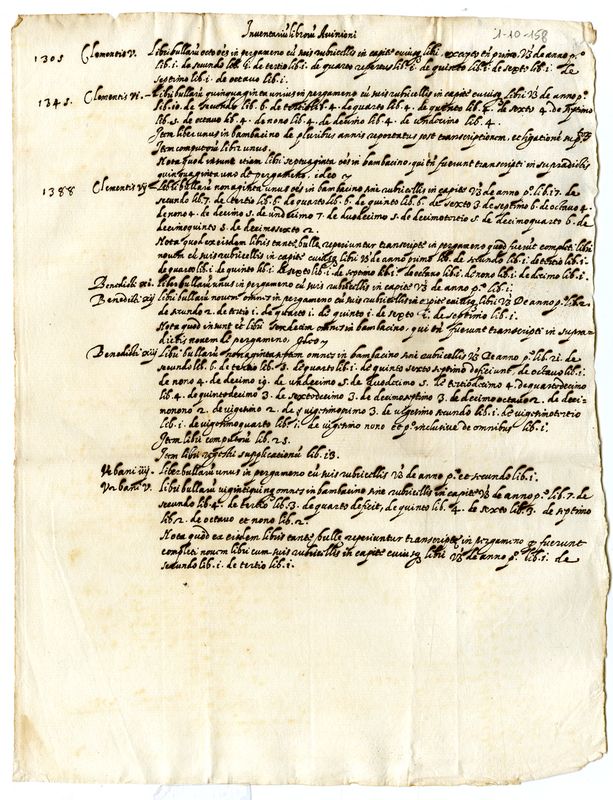 Inventariũ librorũ Avinioni
1-10-158
1305 Clementis V. Libri bullarũ octo oẽs in pergameno cũ suis rubricellis in capite cuiusq libri excepto in primo vz de anno pº
lib. i. de secundo lib. i. de tertio lib. i. de quarto lib. i. de quinto lib. i. de sexto lib. i. de
septimo lib. i. de octavo lib. i.
1345. Clementis vi. Libri bullarũ quinquaginta unus in pergameno cũ suis rubricellis in capite cuiusq libri vz de anno pº
lib. 10. de secundo lib. 6. de tertio lib. 4. de quarto lib. 4. de quinto lib. 4. de sexto 4. de septimo
lib. 5. de octavo lib. 4. de nono lib. 4. de decimo lib. 4. de undecimo lib. 4.
Item liber unus in bambacino de pluribus annis reportatus post transcriptionem, et ligationẽ
Item computorũ liber unus.
Nota quod insunt etiam libri septuaginta oẽs in bambacino, qui tñ fuerunt transcripti in supradictis
quinquaginta uno de pergameno. ideo
1388 Clementis vij Libri bullarũ nonaginta unus oẽs in bambacino sine rubricellis in capite vz de anno pº lib. 17. de
secundo lib. 7. de tertio lib. 6. de quarto lib. 6. de quinto lib. 6. de sexto 3. de septimo 6. de octavo 4.
de nono 4. de decimo 5. de undecimo 7. de duodecimo 5. de decimotertio 5. de decimoquarto 6. de
decimoquinto 5. de decimosexto 2.
Nota quod ex eisdem libris tantũ bullẽ reperiuntur transcriptẽ in pergameno quod fuerũt completi libri
novem cũ suis rubricellis in capite cuiusq libri vz de anno primo lib. de secundo lib. i. de tertio lib. i.
de quarto lib. i. de quinto lib. i. de sexto lib. i. de septimo lib. i. de octavo lib. i. de nono lib. i. de decimo lib. i.
Benedicti xi. Liber bullarũ unus in pergameno cũ suis rubricellis in capite vz de anno pº lib. i.
Benedicti xij Libri bullarũ novem omnes in pergameno cũ suis rubricellis in capite cuiusq libri vz De anno pº lib. 2
de secundo 2. de tertio i. de quarto i. de quinto i. de sexto i. de septimo lib. i.
Nota quod insunt et libri omnes in bambacino, qui tñ fuerunt transcripti in supra-
dictis novem de pergameno, Ideo
Benedicti xiij Libri bullarũ nonaginta septem omnes in bambacino sine rubricellis vz De anno pº lib. 21. de
secundo lib. 6. de tertio lib. 3. de quarto lib. i. de quinto sexto septimo deficiunt, de octavo lib. i.
de nono 4. de decimo 19. de undecimo 5. de duodecimo 5. de tertiodecimo 4. de quartodecimo
lib. 4. de quintodecimo 3. de sextodecimo 3. de decimoseptimo 3. de decimooctavo 2. de deci-
monono 2. de vigesimo 2. de vigesimoprimo 3. de vigesimo secundo lib. i. de vigesimotertio
lib. i. de vigesimoquarto lib. i. de vigesimo nono et pº inclusive de omnibus lib. i.
Item libri computorũ lib. 25.
Item libri registri supplicationũ lib. 13.
Urbani iiij. Liber bullarũ unus in pergameno cũ suis rubricellis vz de anno pº et secundo lib. i.
Urbani V. Libri bullarũ vigintiquinq omnes in bambacino sine rubricellis in capite vz de anno pº lib. 7. de
secundo lib. 4. de tertio lib. 3. de quarto deficit, de quinto lib. 4. de sexto lib. 3. de septimo
lib. 2. de octavo et nono lib. 2.
Nota quod ex eisdem libris tantẽ bullẽ reperiuntur transcriptẽ in pergameno q fuerunt
completi novem libri cum suis rubricellis in capite cuiusq libri vz de anno pº lib. i. de
secundo lib. i. de tertio lib. i.